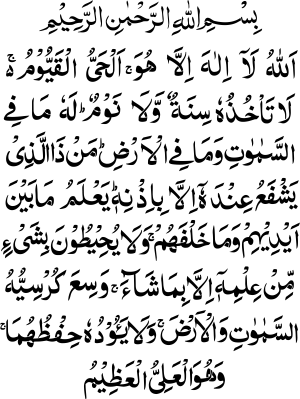 بِسْمِ اللهِ الرَّحْمٰنِ الرَّحِيْمِ
اَللهُ لَآ اِلٰهَ اِلَّا هُوَۚ اَلْحَيُّ الْقَيُّوْمُ ۚ
لَا تَاْخُذُهٗ سِنَةٌ وَّلَا نَوْمٌ ؕ لَهٗ مَا فِي
السَّمٰوٰتِ وَمَا فِي الْاَرْضِ ؕ مَنْ ذَا الَّذِيْ
يَشْفَعُ عِنْدَهٗٓ اِلَّا بِاِذْنِهٖ ؕ يَعْلَمُ مَا بَيْنَ
اَيْدِيْهِمْ وَمَا خَلْفَهُمْ ۚ وَلَا يُحِيْطُوْنَ بِشَيْءٍ
مِّنْ عِلْمِهٖٓ اِلَّا بِمَا شَآءَ ۚ وَسِعَ كُرْسِيُّهُ
السَّمٰوٰتِ وَالْاَرْضَ ۚ وَلَا يَـُٔوْدُهٗ حِفْظُهُمَا ۚ
وَهُوَ الْعَلِيُّ الْعَظِيْمُ